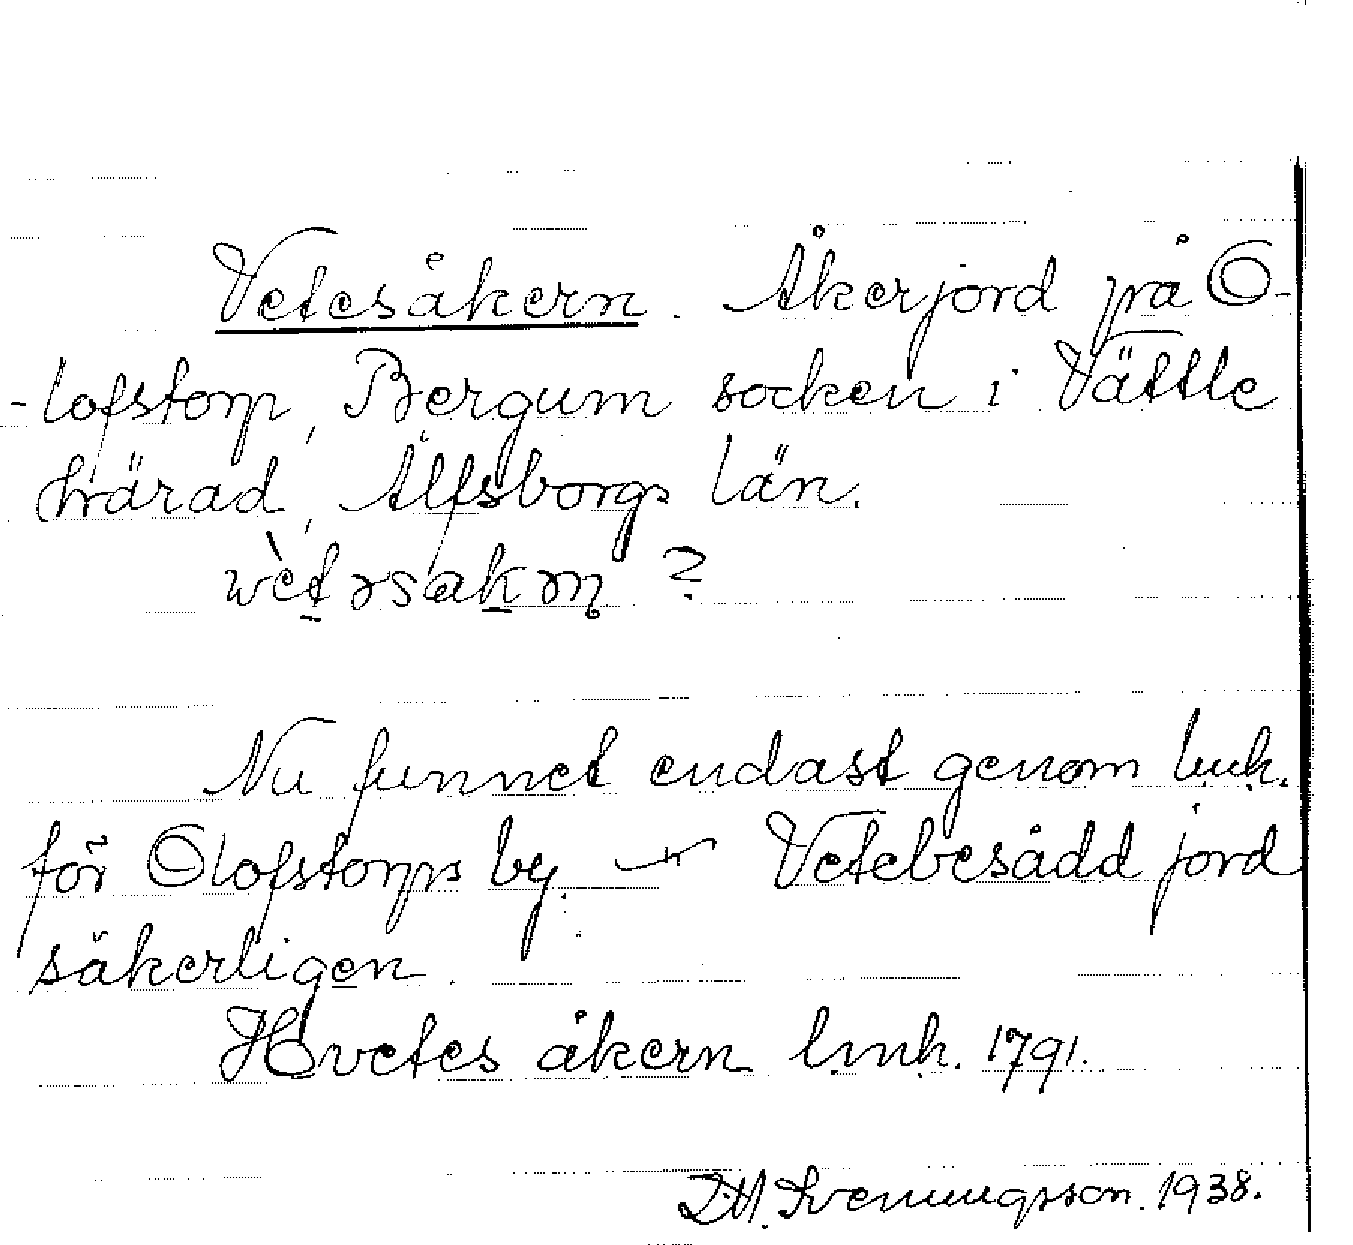 Vetesåkern. Åkerjord på O-
-lofstorp, Bergum socken i Vättle
härad, Älfsborgs län.
wètəsakəṇ ?
Nu funnet endast genom lmh.
för Olofstorps by. Vetebesådd jord
säkerligen.
Hvetes åkern lmh. 1791.
D.M. Svenungsson. 1938.